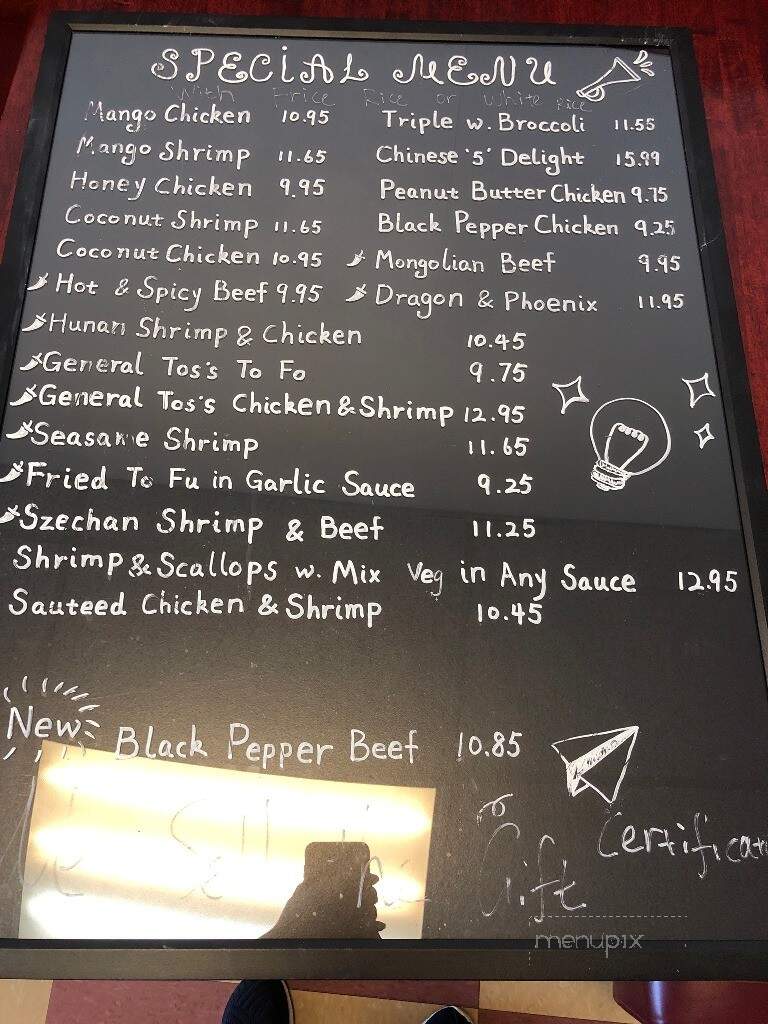 SPECIAL MENU
With Frice Rice or White Rice
Mango Chicken 10.95
Mango Shrimp 11.65
Honey Chicken 9.95
Coconut Shrimp 11.65
Coconut Chicken 10.95
Hot & Spicy Beef 9.95
Triple w. Broccoli 11.55
Chinese '5' Delight 15.99
Peanut Butter Chicken 9.75
Black Pepper Chicken 9.25
Mongolian Beef 9.95
Dragon & Phoenix 11.95
Hunan Shrimp & Chicken 10.45
General Tos's To Fo 9.75
General Tos's Chicken & Shrimp 12.95
Seasame Shrimp 11.65
Fried To Fu in Garlic Sauce 9.25
Szechan Shrimp & Beef 11.25
Shrimp & Scallops w. Mix Veg in Any Sauce 12.95
Sauteed Chicken & Shrimp 10.45
New
Black Pepper Beef 10.85
Sell Gift Certificat
menupix